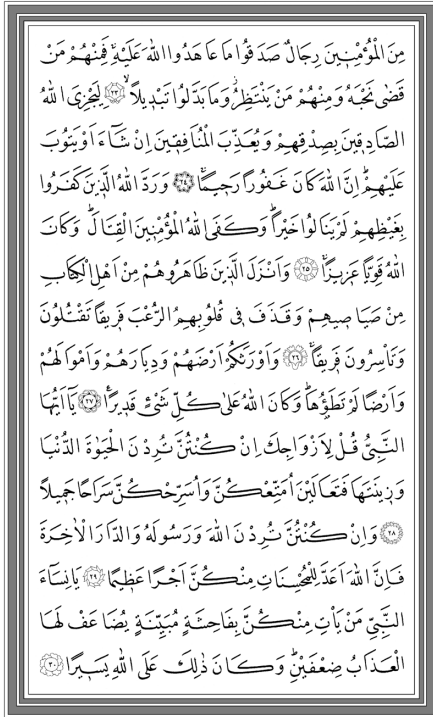 مِنَ الْمُؤْمِنٖينَ رِجَالٌ صَدَقُوا مَا عَاهَدُوا اللّٰهَ عَلَيْهِۚ فَمِنْهُمْ مَنْ
قَضٰى نَحْبَهُ وَمِنْهُمْ مَنْ يَنْتَظِرُۘ وَمَا بَدَّلُوا تَبْدٖيلاًۙ ﴿٢٣﴾ لِيَجْزِيَ اللّٰهُ
الصَّادِقٖينَ بِصِدْقِهِمْ وَيُعَذِّبَ الْمُنَافِقٖينَ اِنْ شَٓاءَ اَوْ يَتُوبَ
عَلَيْهِمْۜ اِنَّ اللّٰهَ كَانَ غَفُوراً رَحٖيماًۚ ﴿٢٤﴾ وَرَدَّ اللّٰهُ الَّذٖينَ كَفَرُوا
بِغَيْظِهِمْ لَمْ يَنَالُوا خَيْراًۜ وَكَفَى اللّٰهُ الْمُؤْمِنٖينَ الْقِتَالَۜ وَكَانَ
اللّٰهُ قَوِياًّ عَزٖيزاًۚ ﴿٢٥﴾ وَاَنْزَلَ الَّذٖينَ ظَاهَرُوهُمْ مِنْ اَهْلِ الْكِتَابِ
مِنْ صَيَاصٖيهِمْ وَقَذَفَ فٖي قُلُوبِهِمُ الرُّعْبَ فَرٖيقاً تَقْتُلُونَ
وَتَأْسِرُونَ فَرٖيقاًۚ ﴿٢٦﴾ وَاَوْرَثَكُمْ اَرْضَهُمْ وَدِيَارَهُمْ وَاَمْوَالَهُمْ
وَاَرْضاً لَمْ تَطَؤُ۫هَاۜ وَكَانَ اللّٰهُ عَلٰى كُلِّ شَيْءٍ قَدٖيراًۚ ﴿٢٧﴾ يَٓا اَيُّهَا
النَّبِيُّ قُلْ لِاَزْوَاجِكَ اِنْ كُنْتُنَّ تُرِدْنَ الْحَيٰوةَ الدُّنْيَا
وَزٖينَتَهَا فَتَعَالَيْنَ اُمَتِّعْكُنَّ وَاُسَرِّحْكُنَّ سَرَاحاً جَمٖيلاً
﴿٢٨﴾ وَاِنْ كُنْتُنَّ تُرِدْنَ اللّٰهَ وَرَسُولَهُ وَالدَّارَ الْاٰخِرَةَ
فَاِنَّ اللّٰهَ اَعَدَّ لِلْمُحْسِنَاتِ مِنْكُنَّ اَجْراً عَظٖيماً ﴿٢٩﴾ يَا نِسَٓاءَ
النَّبِيِّ مَنْ يَأْتِ مِنْكُنَّ بِفَاحِشَةٍ مُبَيِّنَةٍ يُضَاعَفْ لَهَا
الْعَذَابُ ضِعْفَيْنِۜ وَكَانَ ذٰلِكَ عَلَى اللّٰهِ يَسٖيراً ﴿٣٠﴾